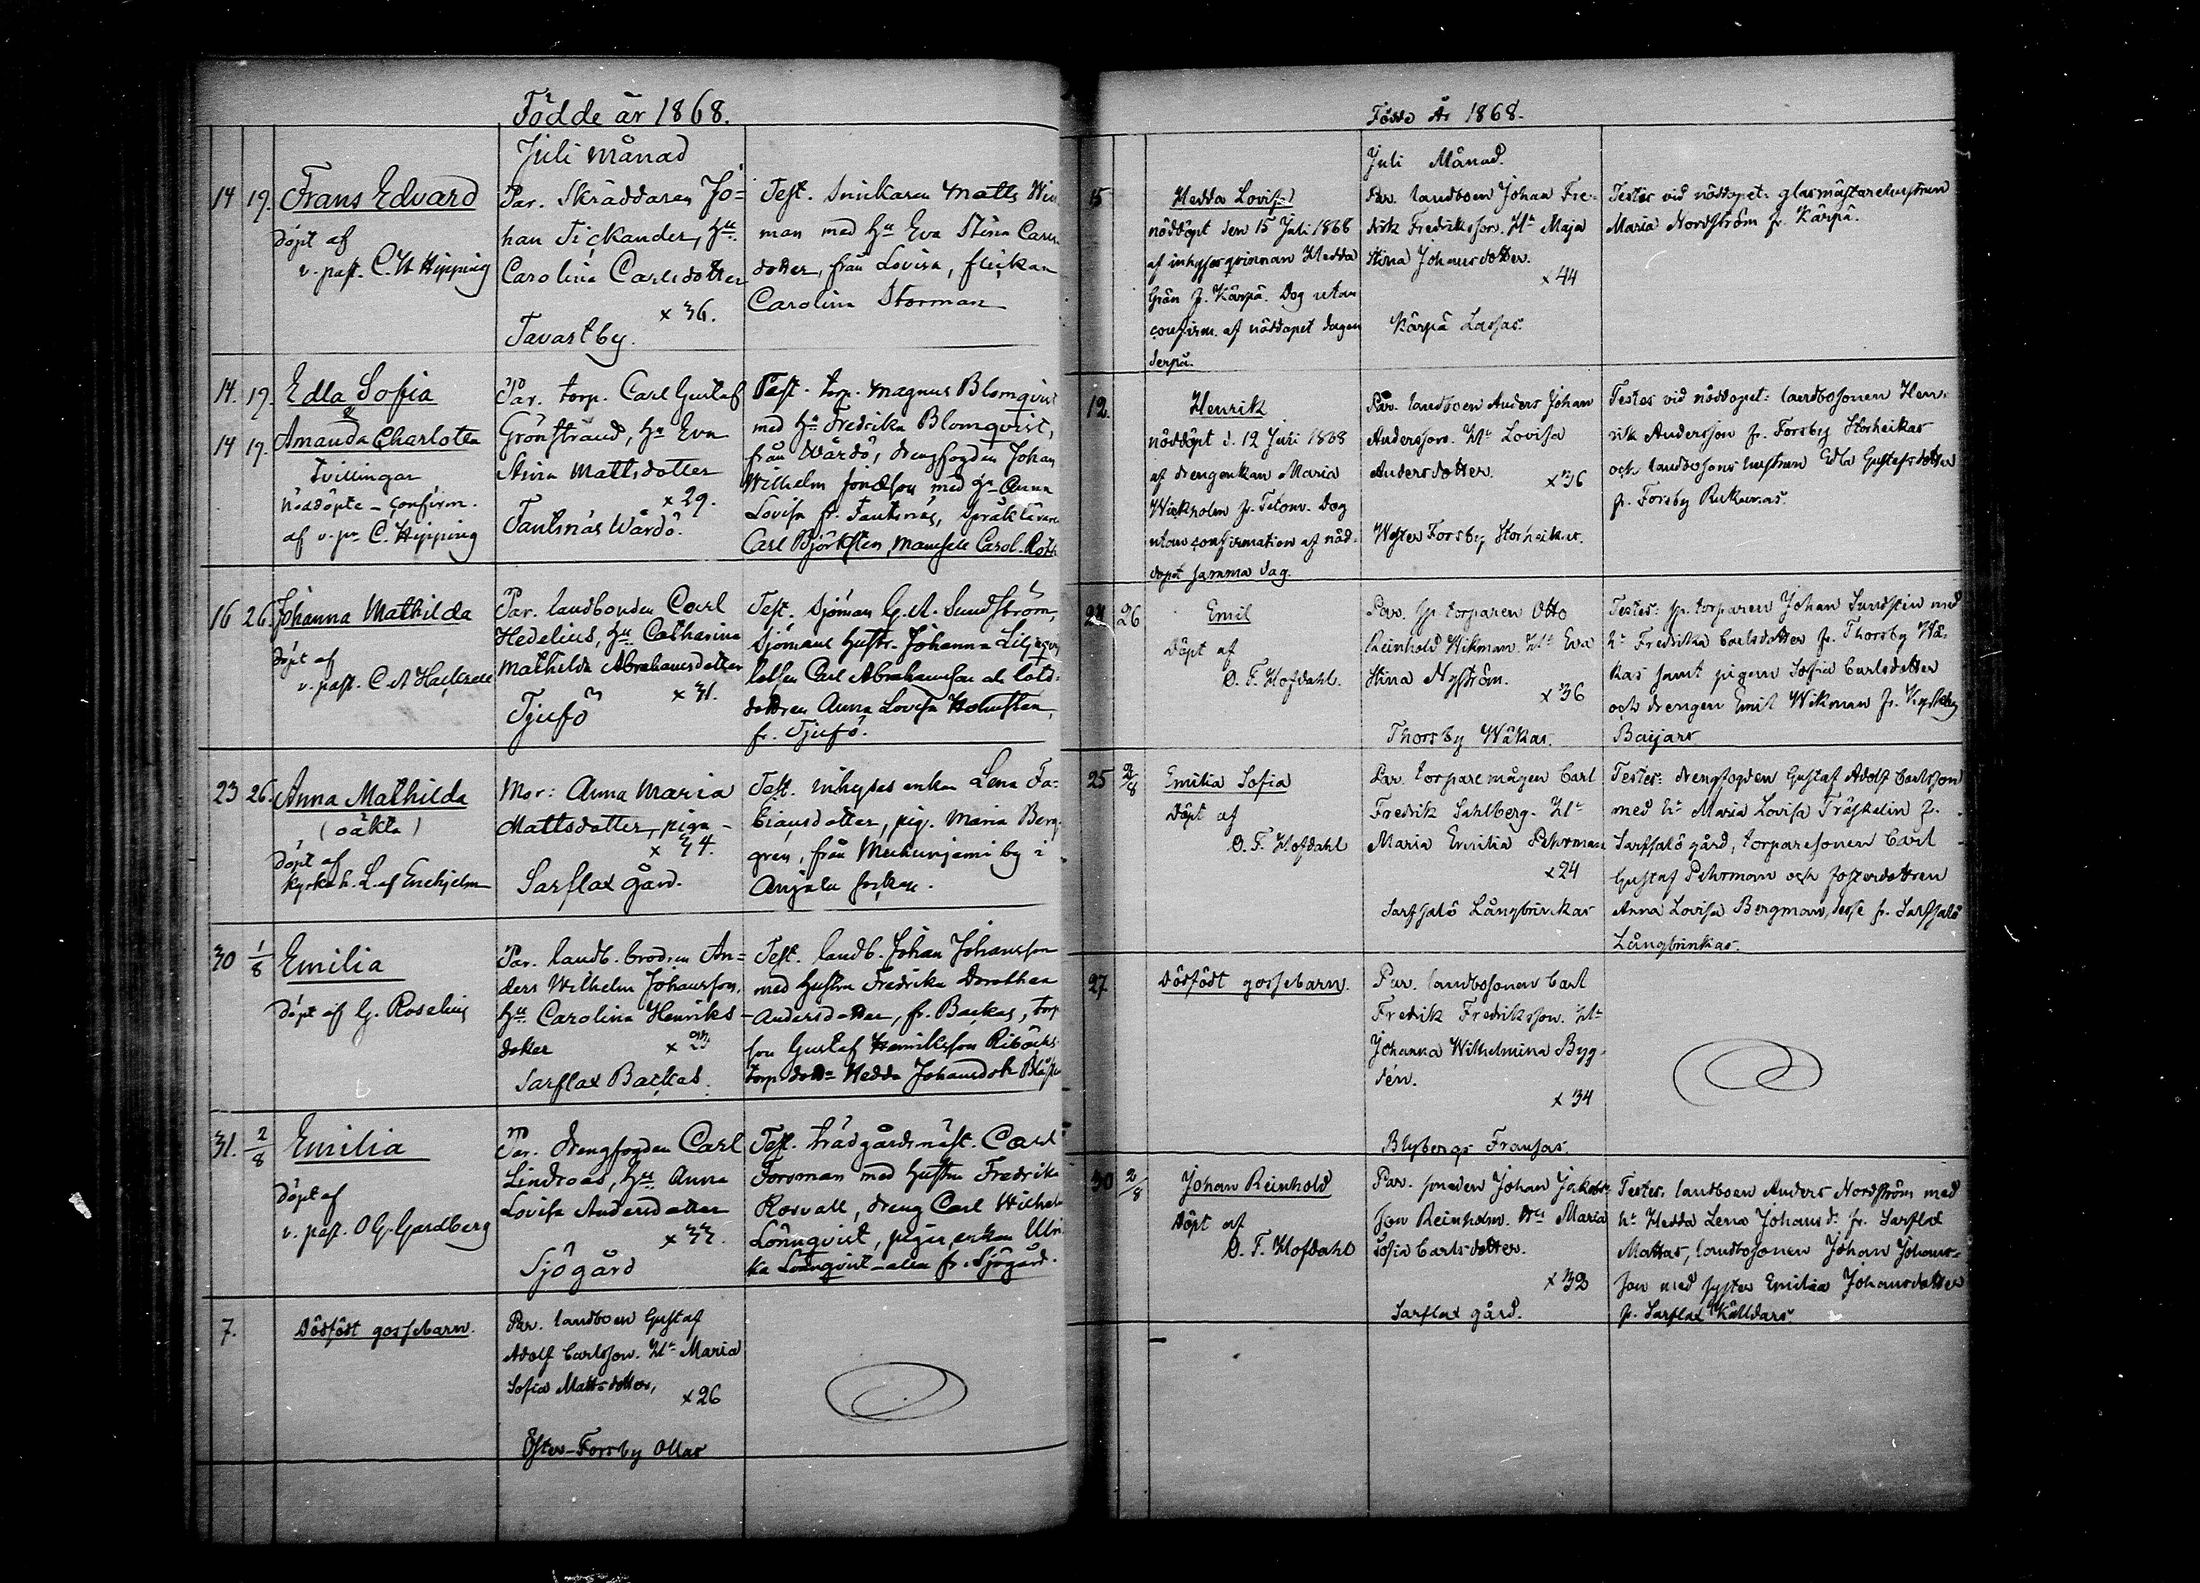 Födde år 1868.
Juli månad
14 19. Frans Edvard
döpt af
v. past. C. W. Hipping
Par. Skräddaren Jo=
han Tickander, Hu
Carolina Carlsdotter
x 36.
Tavastby.
Test. Snickaren Matts
man med Hu Eva Stina
dotter, från Lovisa, flickan
Carolina Storman
14. 19. Edla Sofia
&
14 19 Amanda Charlotta
Tvillingar
nöddöpte - confirm.
af v. p. C. Hipping
Par. torp. Carl Gustaf
Grönstrand, Hu Eva
Stina Mattsdotter
x 29.
Tantsnäs Wårdö.
Test. torp. Magnus Blomqvist
med Hu Fredrika Blomqvist,
från Wårdö, drengfogden Johan
Wilhelm med Hu Anna
Lovisa fr. Tantsnäs, språklärare
Carl Björksten, Mamsell Carol.
16 26. Johanna Mathilda
döpt af
v. past. C A
Par. landbonden Carl
Hedelius, Hu Catharina
Mathilda Abrahamsdotter
x 31.
Tjufö
Test. Sjöman G. A. Sundström,
Sjömans hustr. Johanna
Carl Abrahamsson och lots=
dottren Anna Lovisa Holmsten,
fr. Tjufö.
23 26. Anna Mathilda
(oäkta)
döpt af
kyrkoh. L. af Enehjelm
Mor: Anna Maria
Mattsdotter, piga -
x 44.
Sarflax gård.
Test. inhyses enkan Lena Fa=
biansdotter, pig. Maria Berg-
gren, från by i
Anjala socken.
30 1/8 Emilia
döpt af G. Roselius
Par. landb. brodren An=
ders Wilhelm Johansson,
Hu Carolina Henriks-
dotter x 23
Sarflax Backas.
Test. landb. Johan Johansson
med hustru Fredrika Dorothea
Andersdotter, fr. Backas, torp
son Gustaf Henriksson
torp. dottr. Hedda Johansdotr
31. 2/8 Emilia
döpt af
v. past. O G. Gardberg
Par. Drengfogden Carl
Lindroos, Hu Anna
Lovisa Andersdotter
x 33.
Sjögård
Test. trädgårdsmäst. Carl
Forsman med hustru Fredrika
Rosvall, dreng Carl Wilhelm
Lönnqvist, enkan Ulri
ka Lönnqvist - alla fr. Sjögård.
7. Dödfödt gossebarn.
Par. landboen Gustaf
Adolf Carlsson. Hu Maria
Sofia Mattsdotter,
x 26
Öster-Forsby Ollas
Födde År 1868.
Juli Månad.
15 Hedda Lovisa
nöddöpt den 15 Juli 1868
af inhysesqvinnan Hedda
Grön fr. Kärpä. Dog utan
confirm. af nöddopet dagen
derpå.
Par. landboen Johan Fre-
drik Fredriksson. Hu Maja
Stina Johansdotter.
x 44
Kärpä Lassas.
Testes vid nöddopet: glasmästarehustrun
Maria Nordström fr. Kärpä.
12. Henrik
nöddöpt d. 12 Juli 1868
af drengenkan Maria
Wickholm fr. Tetom. Dog
utan confirmation af nöd-
dopet samma dag.
Par. landboen Anders Johan
Andersson. Hu Lovisa
Andersdotter.
x 36
Wester Forsby Storheikas.
Testes vid nöddopet: landbosonen Hen-
rik Andersson fr. Forsby Storheikas
och landbosons hustrun Edla Gustafsdotter
fr. Forsby
24 26 Emil
Döpt af
O. F. Hofdahl.
Par. Sp. torparen Otto
Reinhold Wikman. Hu Eva
Stina Nyström.
x 36
Thorsby Wåkas.
Testes: Sp. torparen Johan Sundsten med
hu Fredrika Carlsdotter fr. Thorsby Wå-
kas samt pigan Sofia Carlsdotter
och drengen Emil Wikman fr.
Baijars
25 2/8 Emilia Sofia
Döpt af
O. F. Hofdahl
Par. torparemågen Carl
Fredrik Sahlberg. Hu
Maria Emilia Pehrman
x 24
Sarfsalö Långbrinkas
Testes: drengfogden Gustaf Adolf Carlsson
med hu Maria Lovisa Träskelin fr.
Sarfsalö gård, torparesonen Carl
Gustaf Pehrman och fosterdottren
Anna Lovisa Bergman, desse fr. Sarfsalö
Långbrinkas.
27 Dödfödt gossebarn.
Par. landbosonen Carl
Fredrik Fredriksson. Hu
Johanna Wilhelmina Byg-
dén.
x 34
Blybergs Fransas.
30 2/8 Johan Reinhold
Döpt af
O. F. Hofdahl
Par. smeden Johan Jakobs-
son Reinholm. Hu Maria
Sofia Carlsdotter.
x 32
Sarflax gård.
Testes: landboen Anders Nordström med
hu Hedda Lena Johansdr fr. Sarflax
Mattas, landbosonen Johan Johans-
son med syster Emilia Johansdotter
fr. Sarflax Källdars.